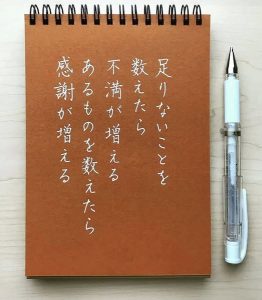 足りないことを
数えたら
不満が増える
あるものを数えたら
感謝が増える